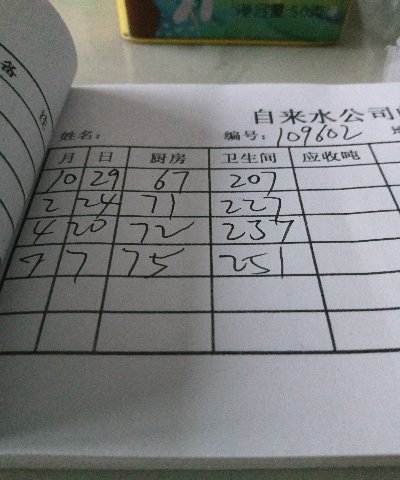 净含量:50克
备
自来水公司
姓名: 编号: 109602
月 日 厨房 卫生间 应收吨
10 29 67 207
2 24 71 227
4 20 72 237
7 7 75 251